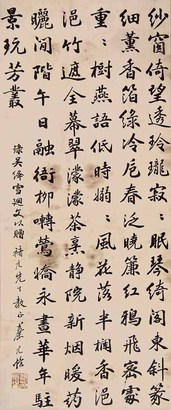 紗窗倚望透玲瓏寂二眠琴綺閣東斜篆
細薰香箔綠冷卮春泛曉簾紅鴉飛密霧
重二樹燕語低時嫋二風花落半欄香浥
浥竹遮全幕翠濛濛茶烹靜院新烟暖藥
曬閒階午日融銜柳囀鶯嬌永晝華年駐
景玩芳叢
錄吳絳雪迴文以贈 九先生教正